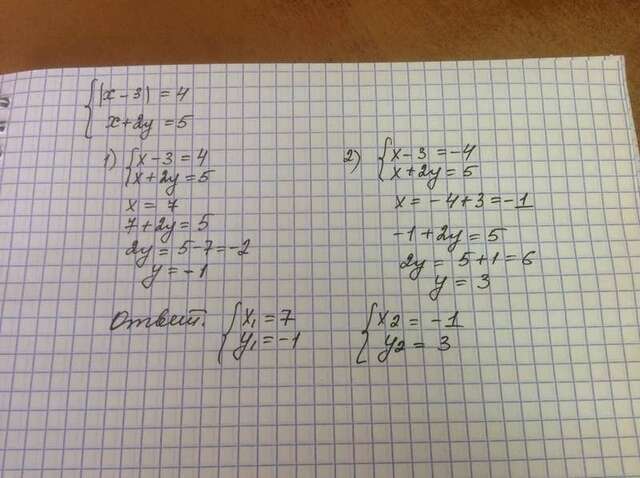 {|x-3| = 4
x+2y = 5
1) {x-3 = 4
x+2y = 5
x = 7
7+2y = 5
2y = 5-7 = -2
y = -1
2) {x-3 = -4
x+2y = 5
x = -4+3 = -1
-1+2y = 5
2y = 5+1 = 6
y = 3
Ответ: {x₁ = 7
y₁ = -1
{x₂ = -1
y₂ = 3